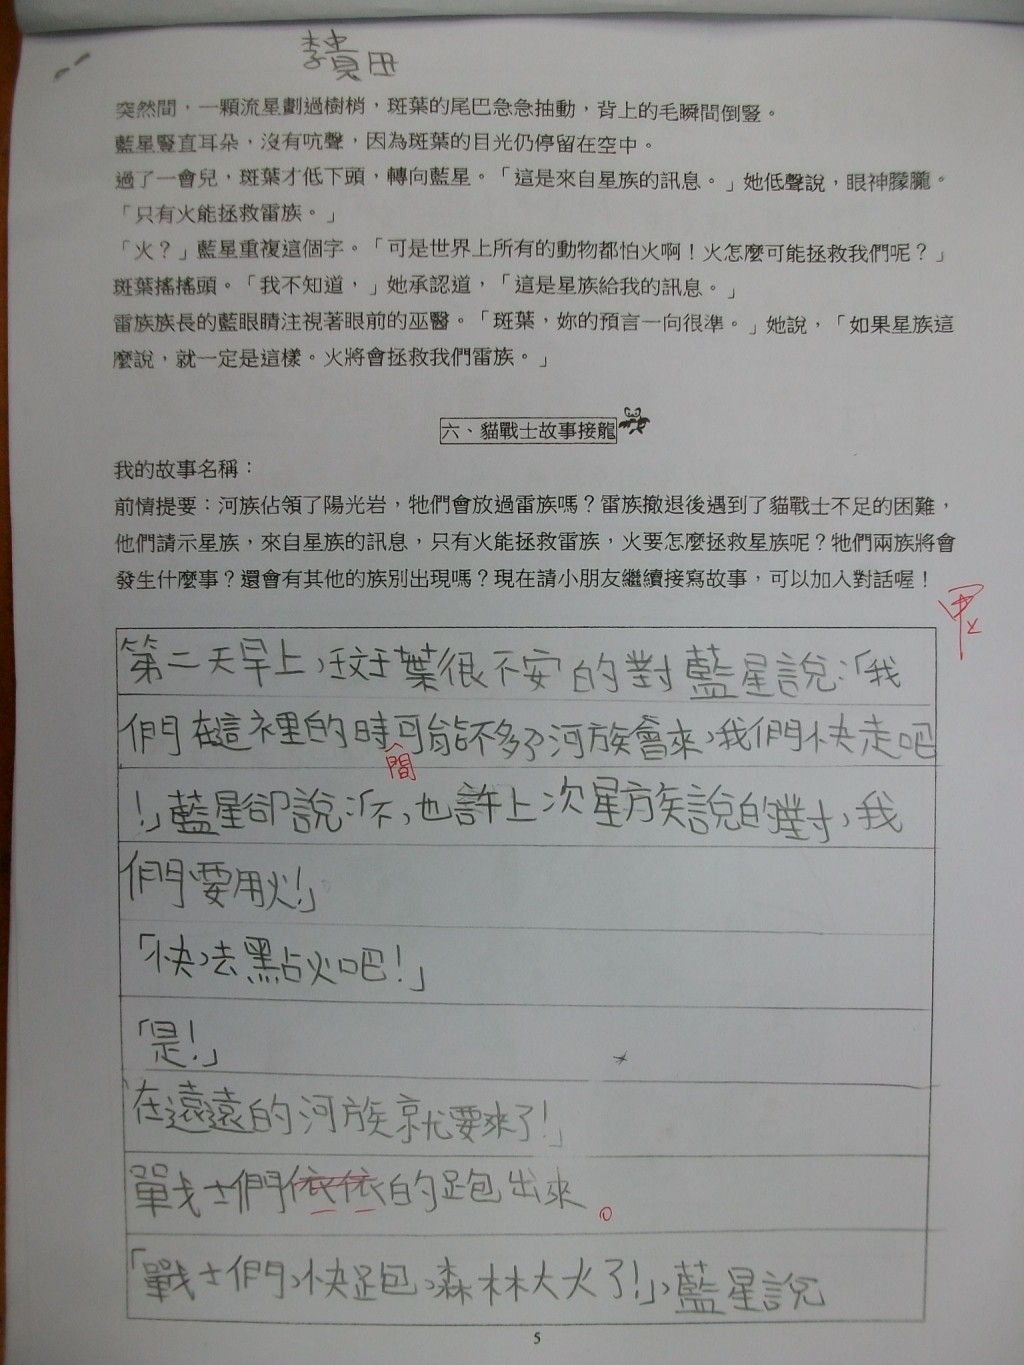 李貴田
突然間，一顆流星劃過樹梢，斑葉的尾巴急急抽動，背上的毛瞬間倒豎。
藍星豎直耳朵，沒有吭聲，因為斑葉的目光仍停留在空中。
過了一會兒，斑葉才低下頭，轉向藍星。「這是來自星族的訊息。」她低聲說，眼神朦朧。
「只有火能拯救雷族。」
「火？」藍星重複這個字。「可是世界上所有的動物都怕火啊！火怎麼可能拯救我們呢？」
斑葉搖搖頭。「我不知道，」她承認道，「這是星族給我的訊息。」
雷族族長的藍眼睛注視著眼前的巫醫。「斑葉，妳的預言一向很準。」她說，「如果星族這
麼說，就一定是這樣。火將會拯救我們雷族。」
六、貓戰士故事接龍
我的故事名稱：
前情提要：河族佔領了陽光岩，牠們會放過雷族嗎？雷族撤退後遇到了貓戰士不足的困難，
他們請示星族，來自星族的訊息，只有火能拯救雷族，火要怎麼拯救星族呢？牠們兩族將會
發生什麼事？還會有其他的族別出現嗎？現在請小朋友繼續接寫故事，可以加入對話喔！
甲上
第二天早上，斑葉很不安的對藍星說：「我
們在這裡的時可能不多了河族會來，我們快走吧
間
！」藍星卻說：「不，也許上次星族說的對，我
們要用火！」
「快去點火吧！」
「是！」
在遠遠的河族就要來了！」
戰士們依依的跑出來。
「戰士們，快跑，森林大火了！」，藍星說
5